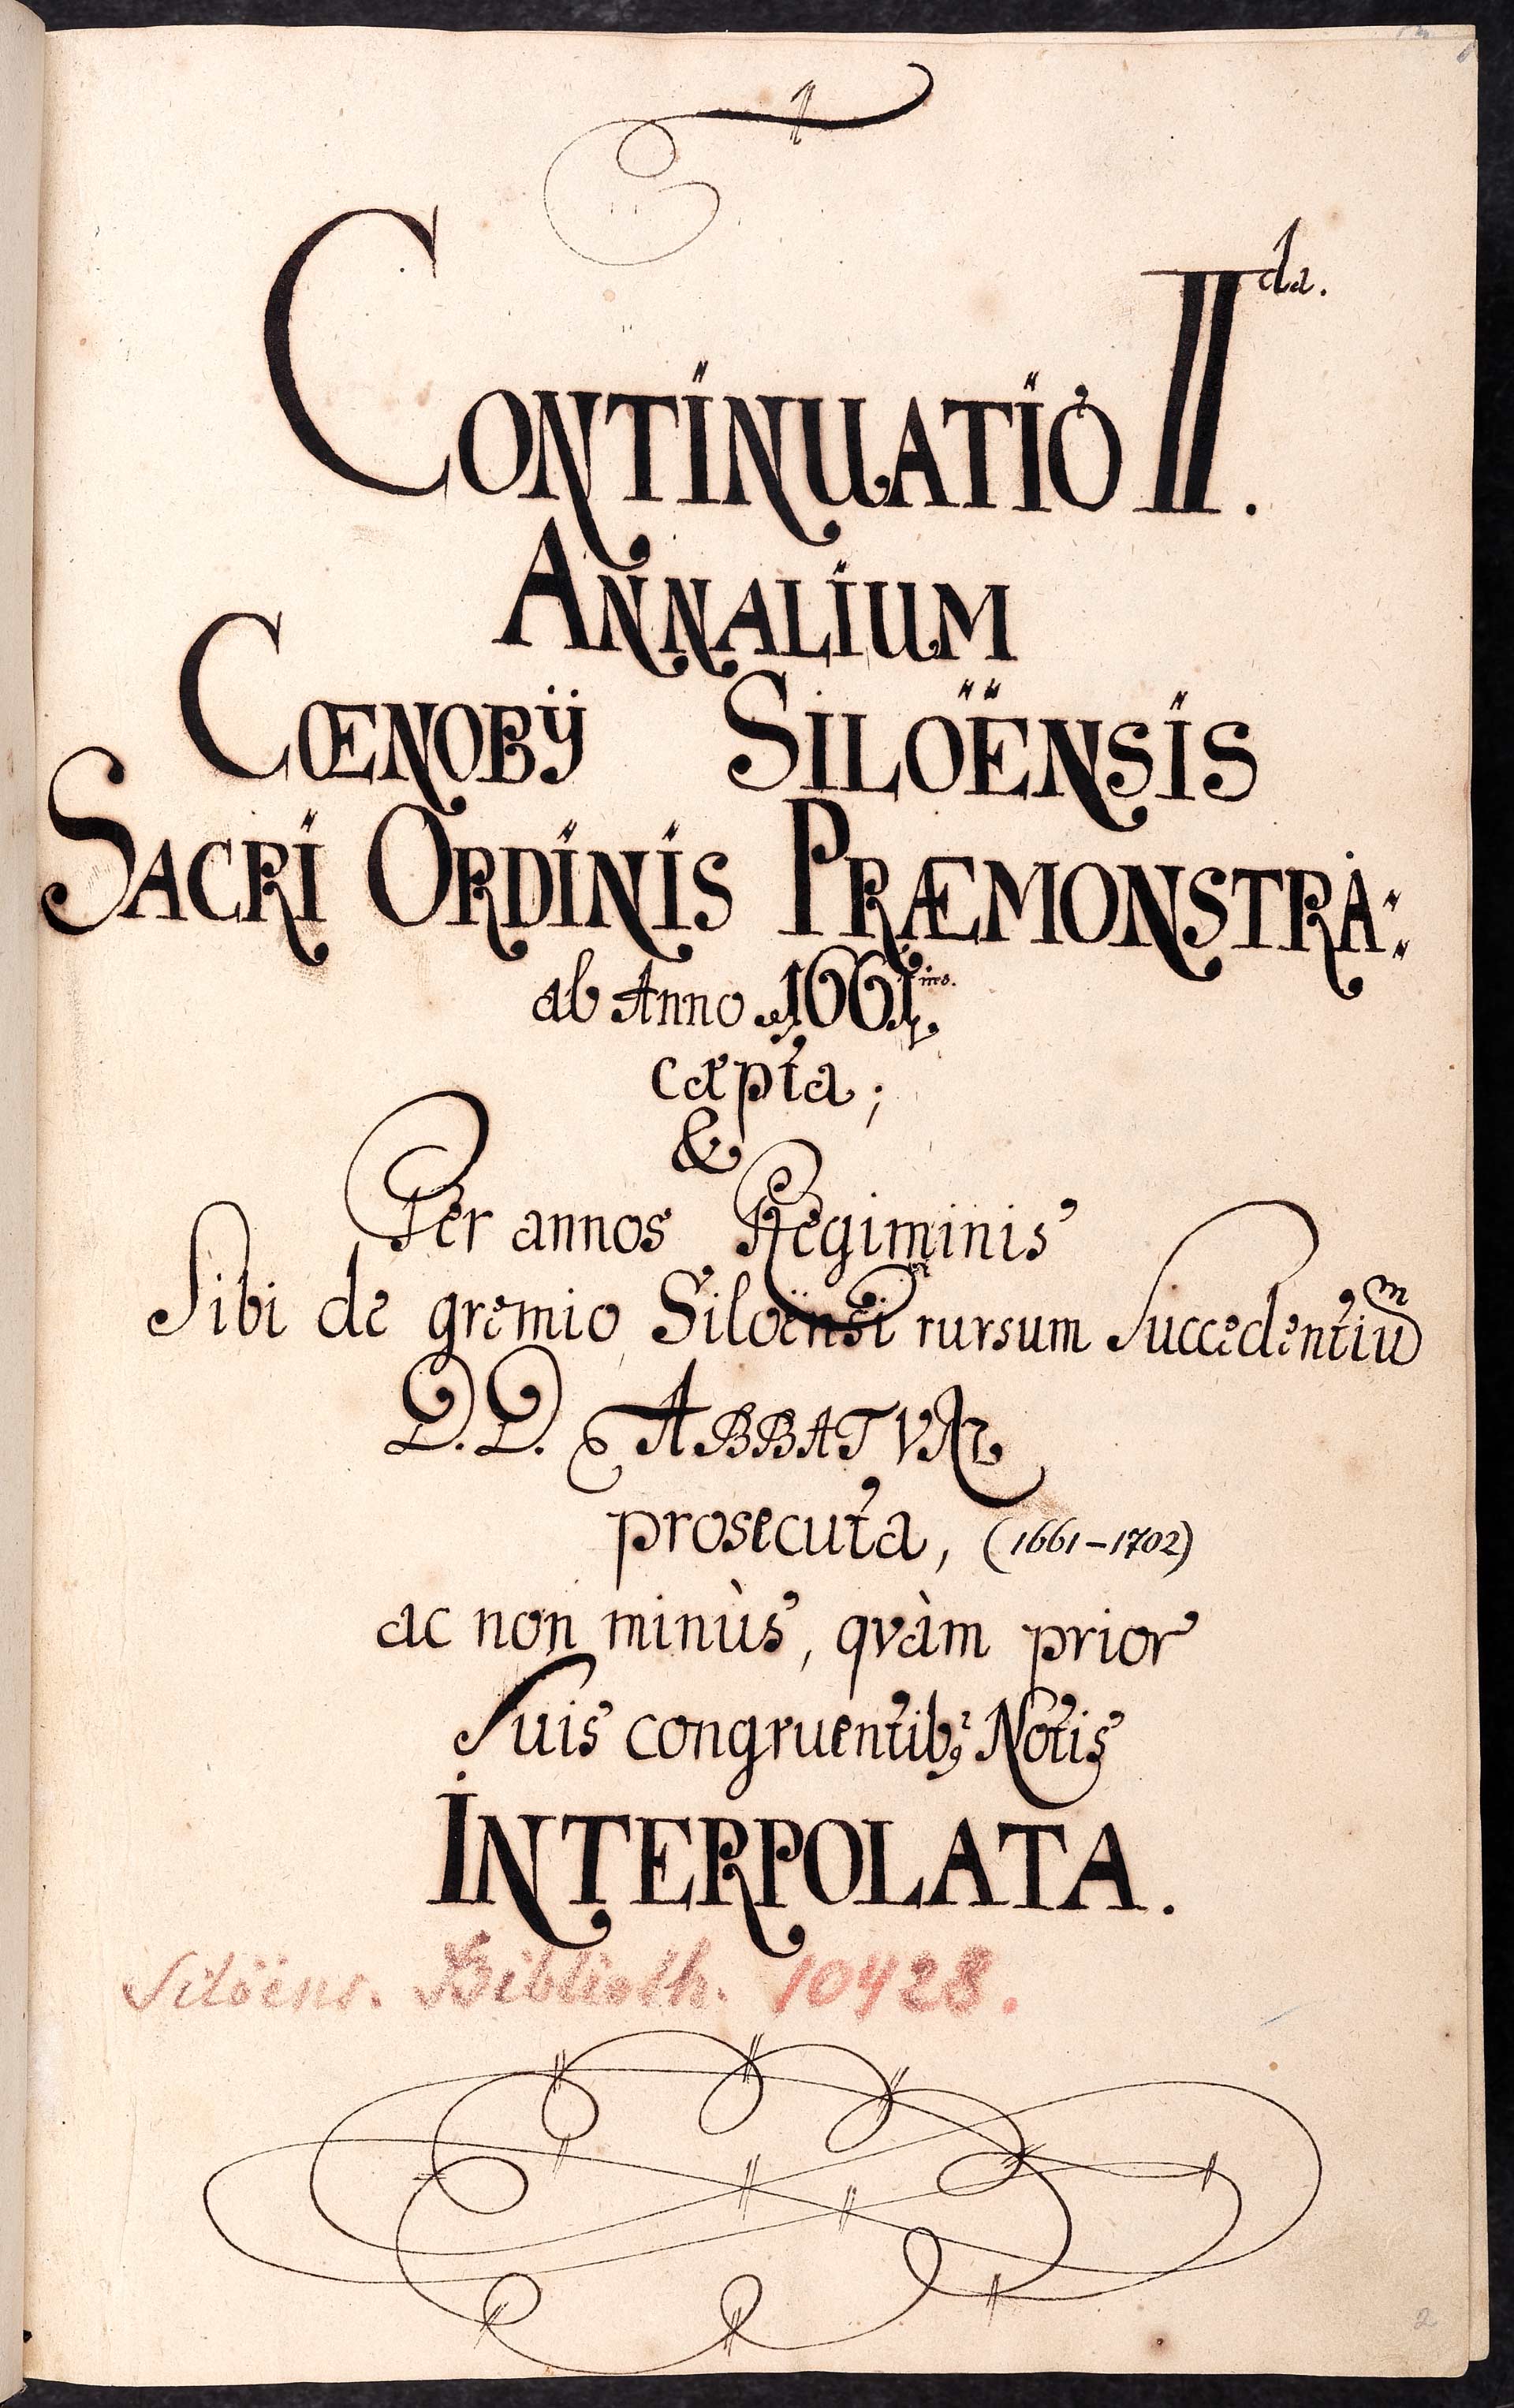 CONTINUATIO II^da.
ANNALIUM
CŒNOBÿ SILOËNSIS
SACRI ORDINIS PRÆMONSTRA:
ab Anno 1661^mo.
cæpta;
&
Per annos Regiminis
Sibi de gremio Siloënsi rursum Succedentiū^m
D.D. ABBATVꝜ
prosecuta, (1661-1702)
ac non minùs, qvàm prior
Suis congruentibꝰ Notis
INTERPOLATA.
Siloëns. Biblioth. 10428.
2